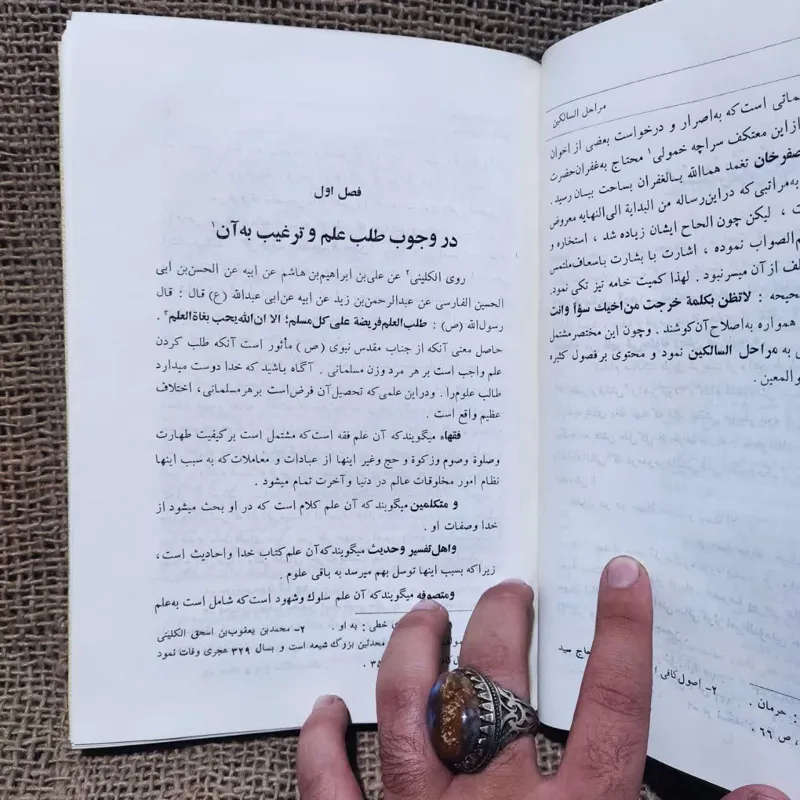 مراحل السالکین
ماتی است که به‌اصرار و درخواست بعضی از اخوان
از این معتکف سراچه خمولی۱ محتاج به‌غفران‌حضرت
صفرخان تغمد هما‌الله بالغفران بساحت بیان رسید .
به‌مراتبی که دراین‌رساله من البدایة الی‌النهایه معروض
، لیکن چون الحاح ایشان زیاده شد ، استخاره و
م‌الصواب نموده ، اشارت با بشارت باسعاف‌ملتمس
لف از آن میسر نبود . لهذا کمیت خامه تیز تکی نمود.
حیحه : لاتظن بکلمة خرجت من‌اخیك سوًأ وانت
همواره به‌اصلاح‌آن‌کوشند . وچون این مختصرمشتمل
ی به مراحل السالکین نمود و محتوی برفصول کثیره
والمعین .
حاج سید
: حرمان . ۲- اصول‌کافی
، ص ۶۶ .
فصل اول
در وجوب طلب علم و ترغیب به‌آن۱
روی الکلینی۲ عن علی‌بن ابراهیم‌بن هاشم عن ابیه عن الحسن‌بن ابی
الحسین الفارسی عن عبدالرحمن‌بن زید عن ابیه عن‌ابی عبدالله (ع) قال : قال
رسول‌الله (ص) : طلب‌العلم‌فریضة علی کل‌مسلم؛ الا ان‌الله‌یحب بغاة‌العلم۳ .
حاصل معنی آنکه از جناب مقدس نبوی (ص) مأثور است آنکه طلب کردن
علم واجب است بر هر مرد وزن مسلمانی . آگاه باشید که خدا دوست میدارد
طالب علوم‌را . ودراین علمی‌که تحصیل‌آن فرض‌است برهرمسلمانی، اختلاف
عظیم واقع است .
فقهاء میگویندکه آن علم فقه است‌که مشتمل است برکیفیت طهارت
وصلوة وصوم وزکوة و حج وغیر اینها از عبادات و معاملات‌که به سبب اینها
نظام امور مخلوقات عالم در دنیا وآخرت تمام میشود .
و متکلمین میگویندکه آن علم کلام است که در او بحث میشود از
خدا وصفات او .
واهل‌تفسیر وحدیث میگویندکه‌آن علم‌کتاب خدا واحادیث است،
زیراکه بسبب اینها توسل بهم میرسد به باقی علوم .
ومتصوفه میگویندکه آن علم سلوك وشهود است‌که شامل است به‌علم
خطی : به او . ۲- محمدبن یعقوب‌بن اسحق الکلینی
محدثین بزرگ شیعه است و بسال ۳۲۹ هجری وفات نمود